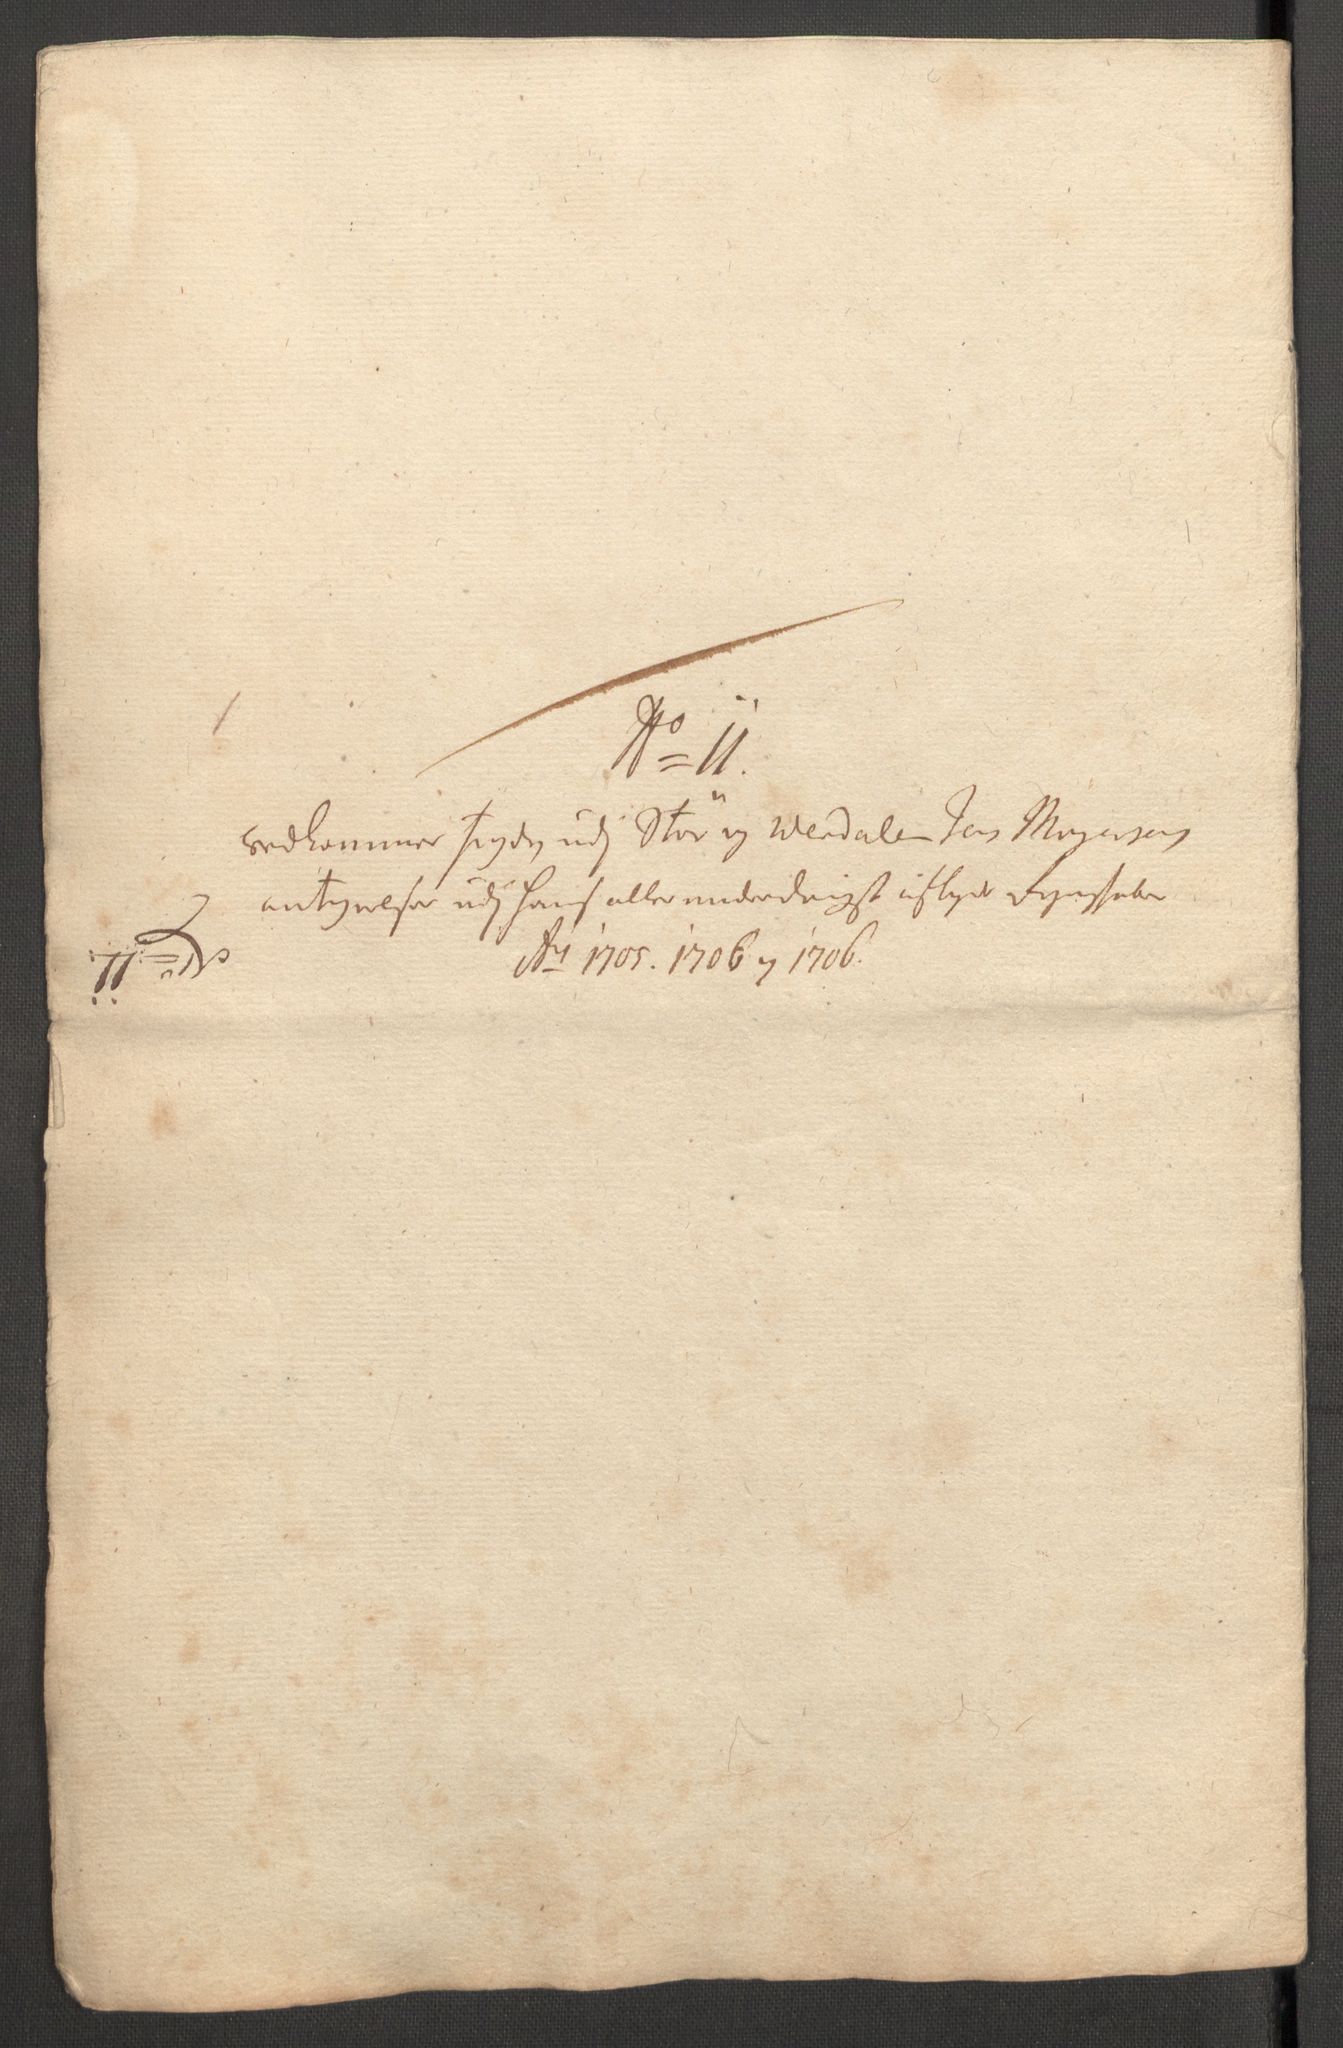 No = 11.
Vedkommer fogden udj Stør og Werdalen Jens Mogensens
antegnelser udj hans allerunderdanigst aflagde Regenskaber
Ao 1705. 1706 og 1706.
No = 11